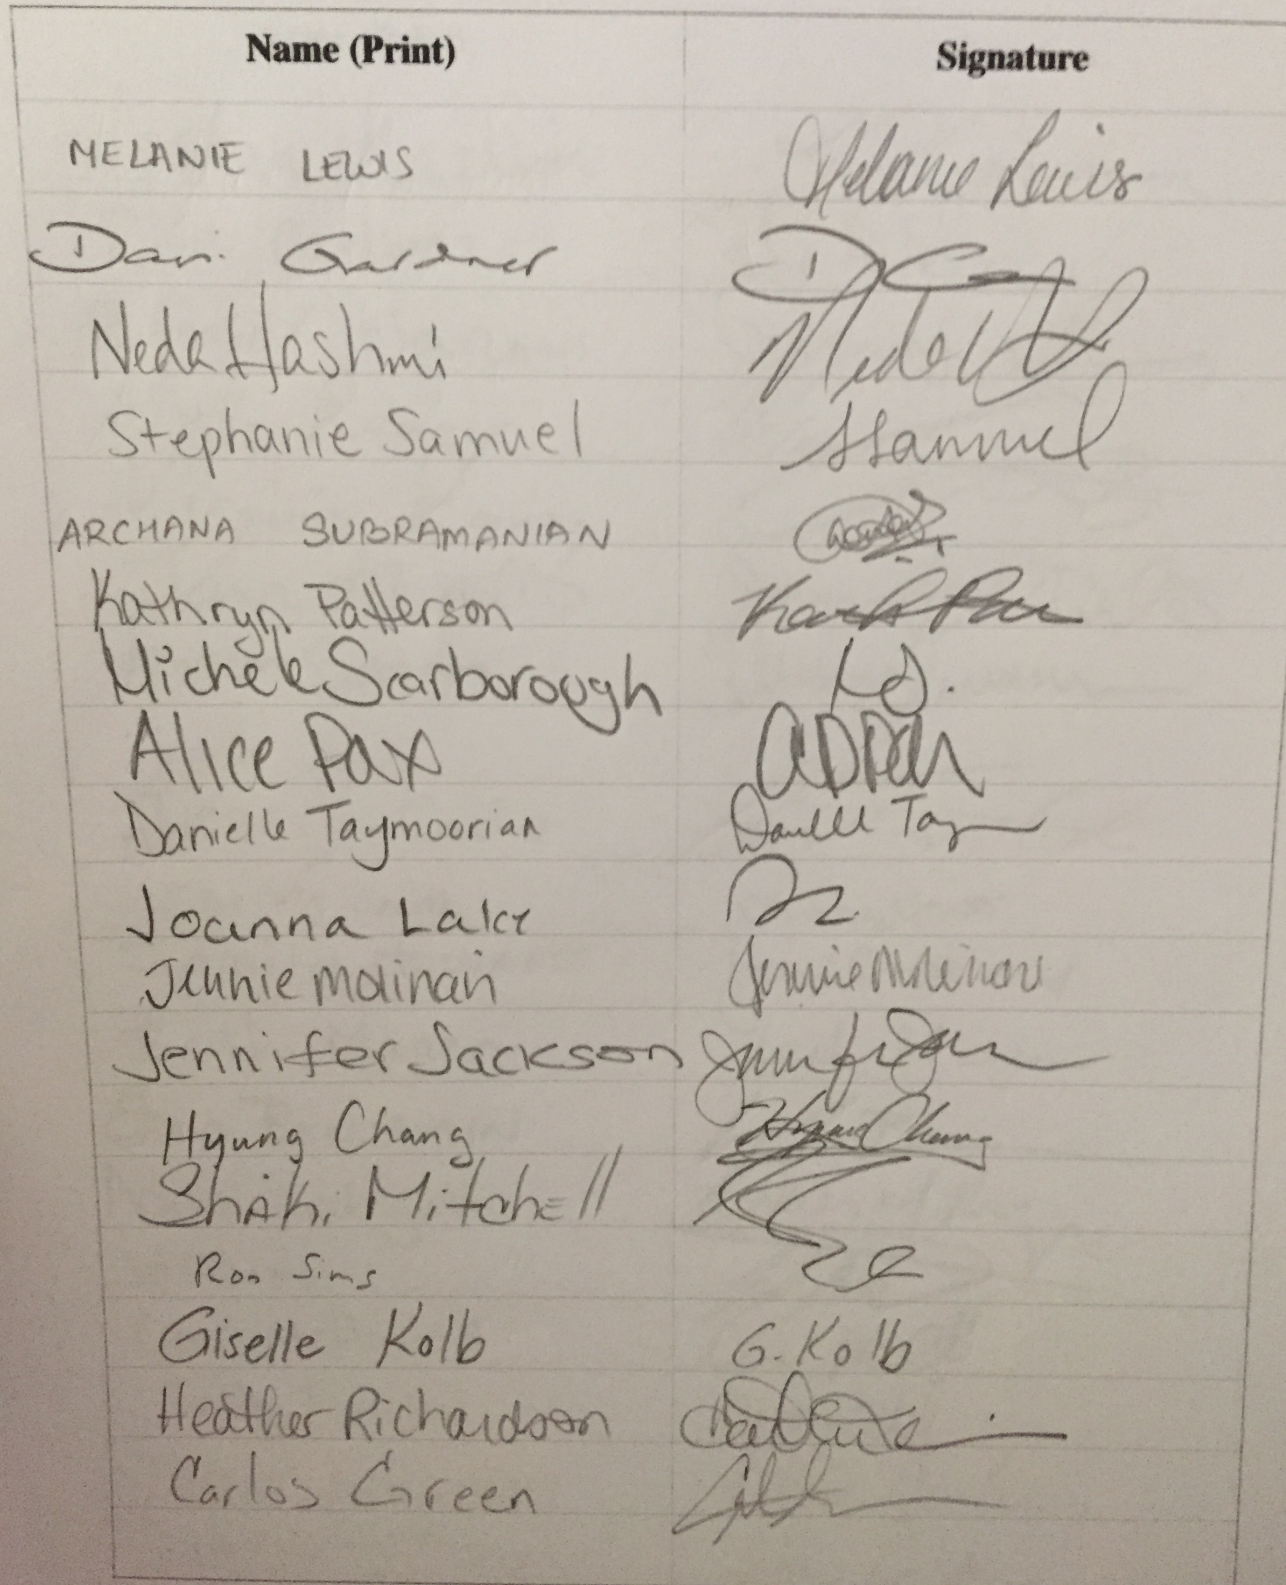 Name (Print) Signature
MELANIE LEWIS Melanie Lewis
Dani Gardner
Neda Hashmi Neda
Stephanie Samuel SSamuel
ARCHANA SUBRAMANIAN
Kathryn Patterson
Michele Scarborough
Alice Pax
Danielle Taymoorian Danielle Tay
Joanna Lake
Jennie Molinari Jennie Molinari
Jennifer Jackson
Hyung Chang Hyung Chang
Shaki Mitchell
Ron Sims
Giselle Kolb G. Kolb
Heather Richardson
Carlos Green